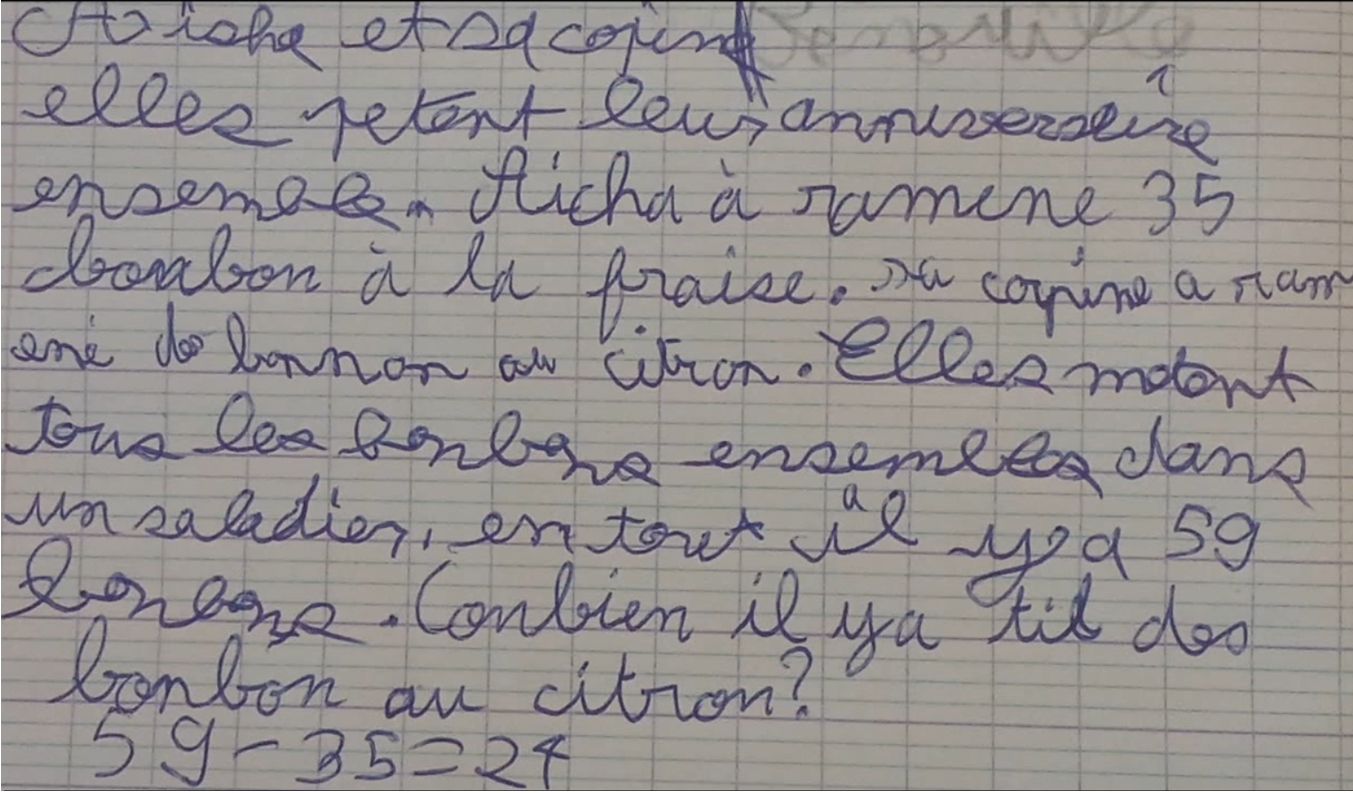 Aicha et sa copine
elles fetent leurs anniversaire
ensemble. Aicha à ramené 35
bonbon à la fraise. sa copine a ram
ené des bonnon au citron. Elles metent
tous les bonbons ensembles dans
un saladier, en tout il y a 59
bonbons. Conbien il ya til des
bonbon au citron?
59-35=24